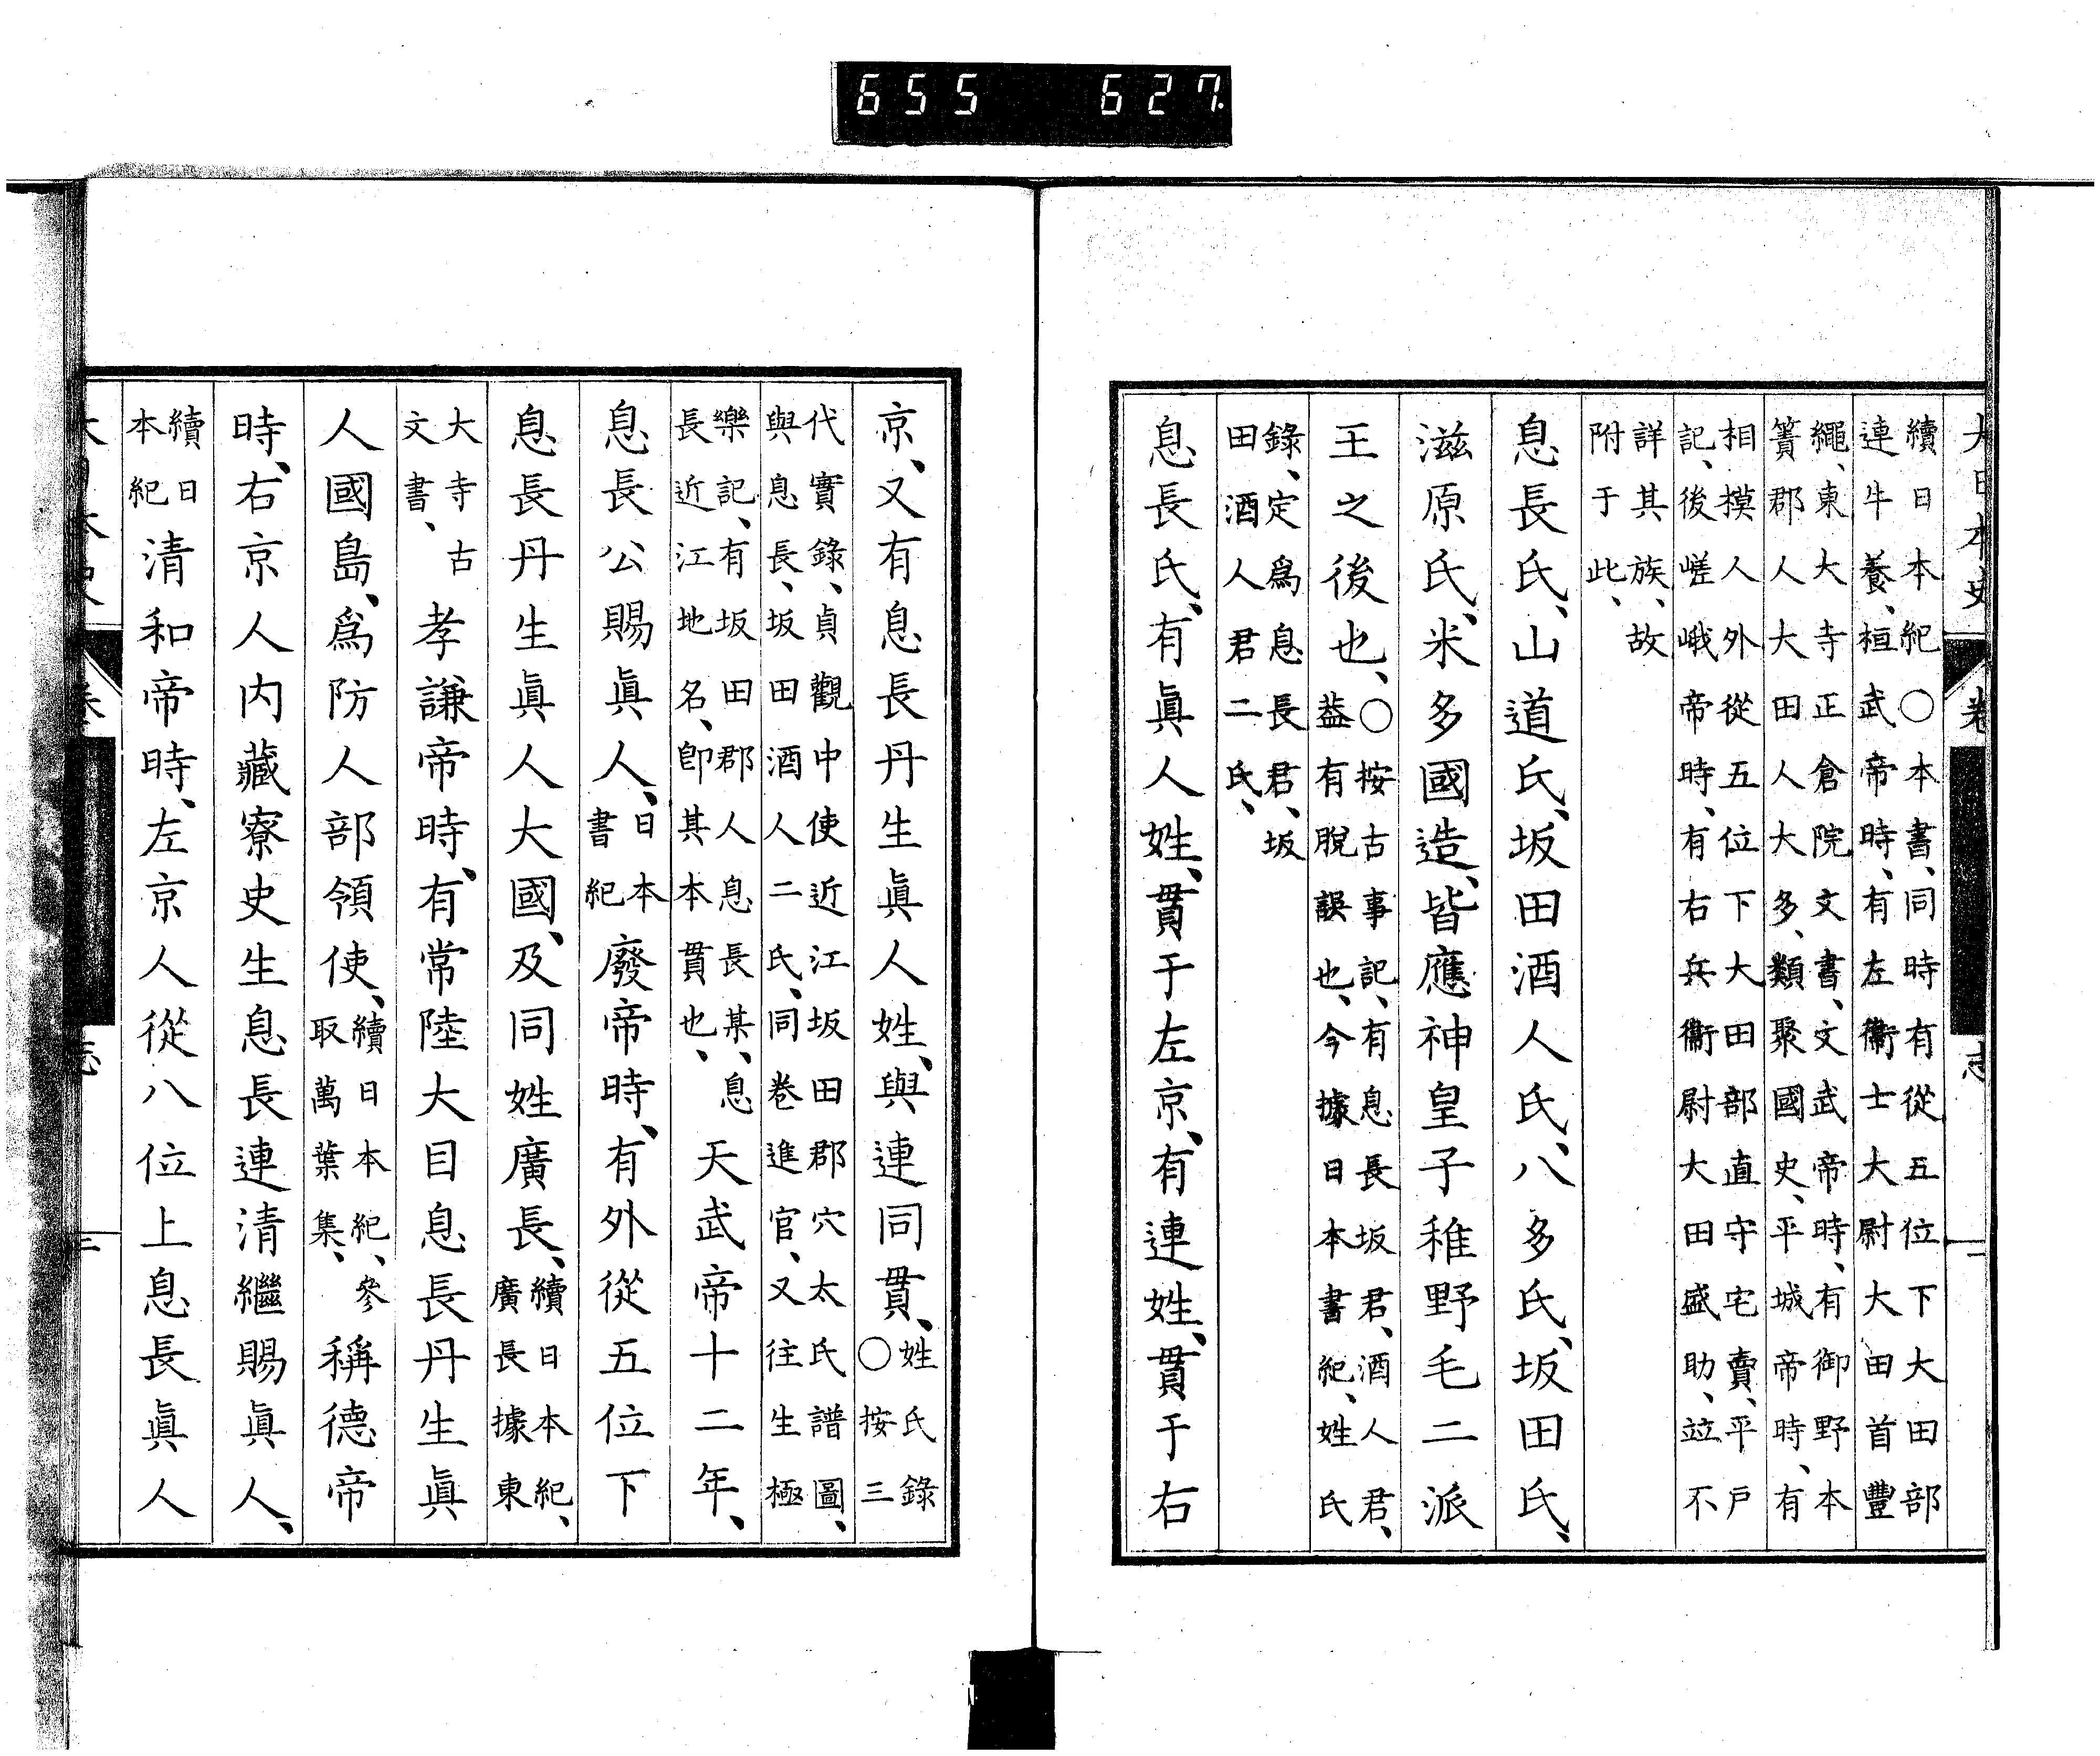 655 627
大日本史 卷 志
續日本紀○本書、同時有從五位下大田部
連牛養、桓武帝時、有左衞士大尉大田首豐
繩、東大寺正倉院文書、文武帝時、有御野本
簀郡人大田人大多、類聚國史、平城帝時、有
相摸人外從五位下大田部直守宅賣、平戸
記、後嵯峨帝時、有右兵衞尉大田盛助、竝不
詳其族、故
附于此、
息長氏、山道氏、坂田酒人氏、八多氏、坂田氏、
滋原氏、米多國造、皆應神皇子稚野毛二派
王之後也、
○按古事記、有息長坂君、酒人君、
葢有脫誤也、今據日本書紀、姓氏
錄、定爲息長君、坂
田酒人君二氏、
息長氏、有眞人姓、貫于左京、有連姓、貫于右
京、又有息長丹生眞人姓、與連同貫、
姓氏錄
○按三
代實錄、貞觀中使近江坂田郡穴太氏譜圖、
與息長、坂田酒人二氏、同卷進官、又往生極
樂記、有坂田郡人息長某、息
長近江地名、卽其本貫也、
天武帝十二年、
息長公賜眞人、
日本
書紀
廢帝時、有外從五位下
息長丹生眞人大國、及同姓廣長、
續日本紀、
廣長據東
大寺古
文書、
孝謙帝時、有常陸大目息長丹生眞
人國島、爲防人部領使、
續日本紀、參
取萬葉集、
稱德帝
時、右京人内藏寮史生息長連清繼賜眞人、
續日
本紀
清和帝時、左京人從八位上息長眞人